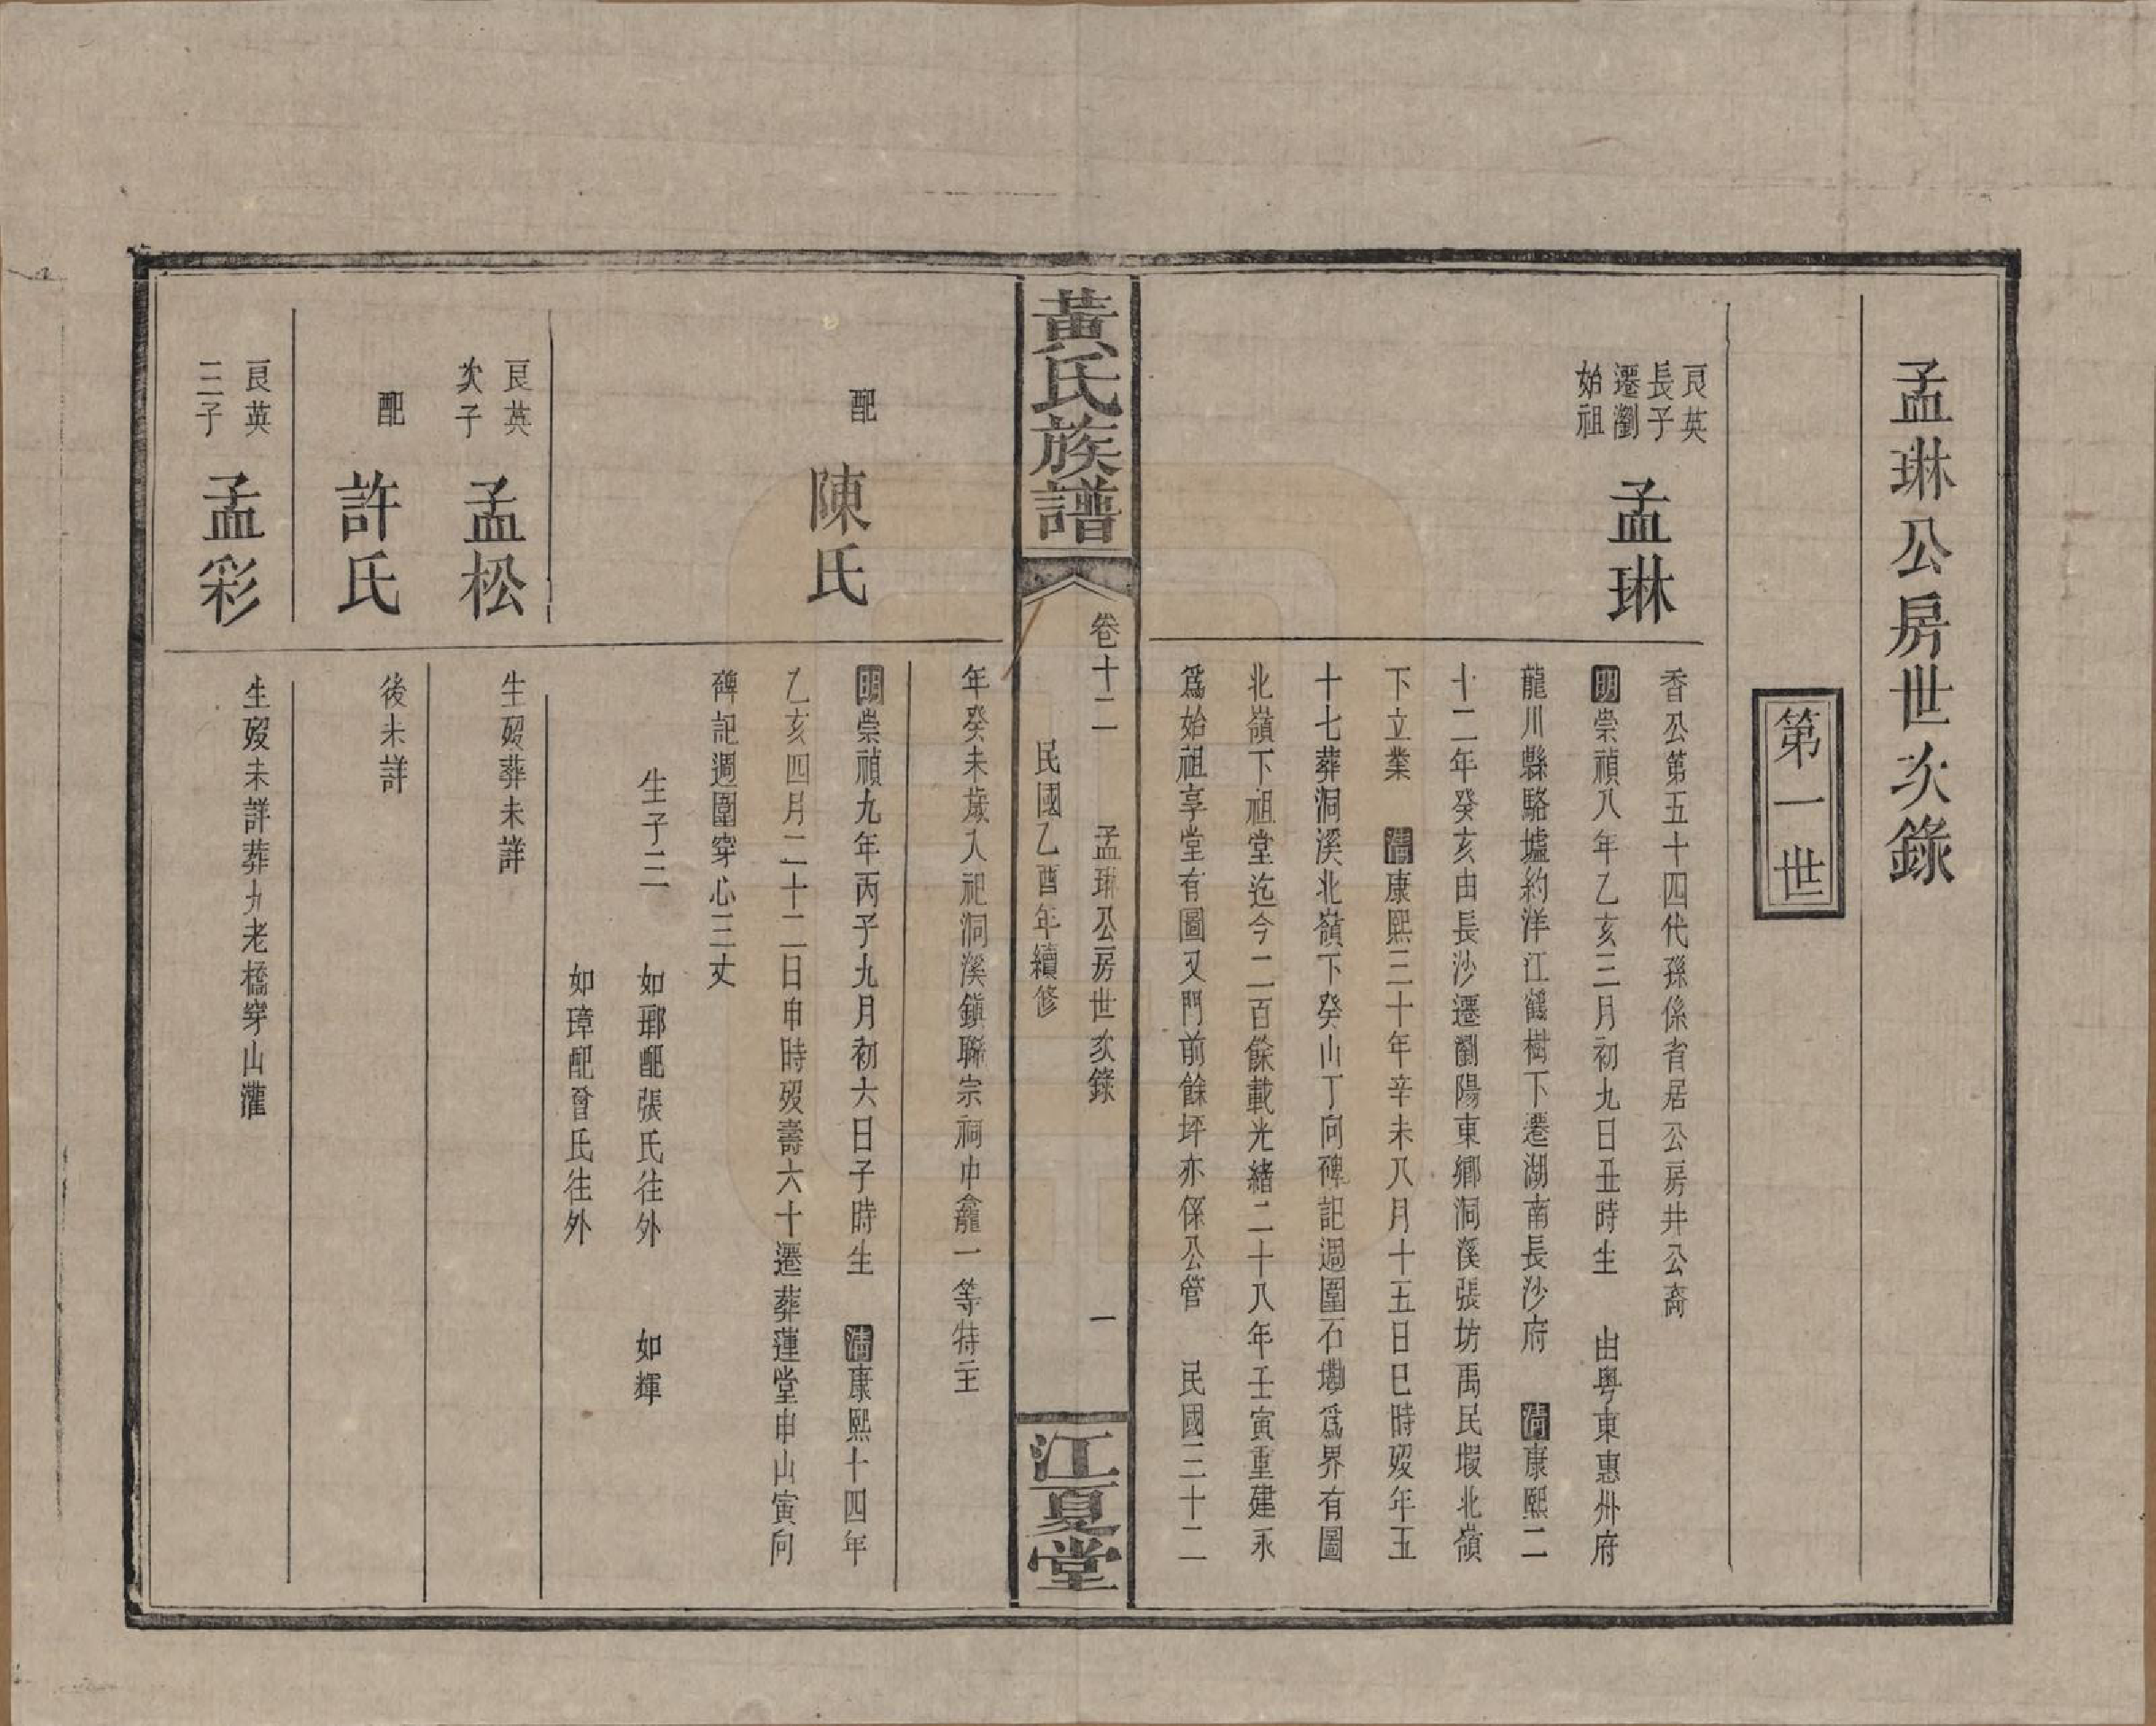 孟琳公房世次錄
第一世
良英
長子
遷瀏
始祖
孟琳
香公第五十四代孫係省居公房井公裔
明崇禎八年乙亥三月初九日丑時生 由粤東惠州府
龍川縣駱墟約洋江鶴樹下遷湖南長沙府 清康熙二
十二年癸亥由長沙遷瀏陽東鄉洞溪張坊禹民塅北嶺
下立業 清康熙三十年辛未八月十五日巳時歿年五
十七葬洞溪北嶺下癸山丁向碑記週圍石墈爲界有圖
北嶺下祖堂迄今二百餘載光緒二十八年壬寅重建永
爲始祖享堂有圖又門前餘坪亦係公管 民國三十二
黃氏族譜
卷十二 孟琳公房世次錄 一
民國乙酉年續修
江夏堂
年癸未歲入祀洞溪鎮聯宗祠中龕一等特主
配
陳氏
明崇禎九年丙子九月初六日子時生 清康熙十四年
乙亥四月二十二日申時歿壽六十遷葬蓮堂申山寅向
碑記週圍穿心三丈
生子三 如郡配張氏往外 如輝
如璋配曾氏往外
良英
次子
孟松
生歿葬未詳
配
許氏
後未詳
良英
三子
孟彩
生歿未詳葬九老橋穿山灌